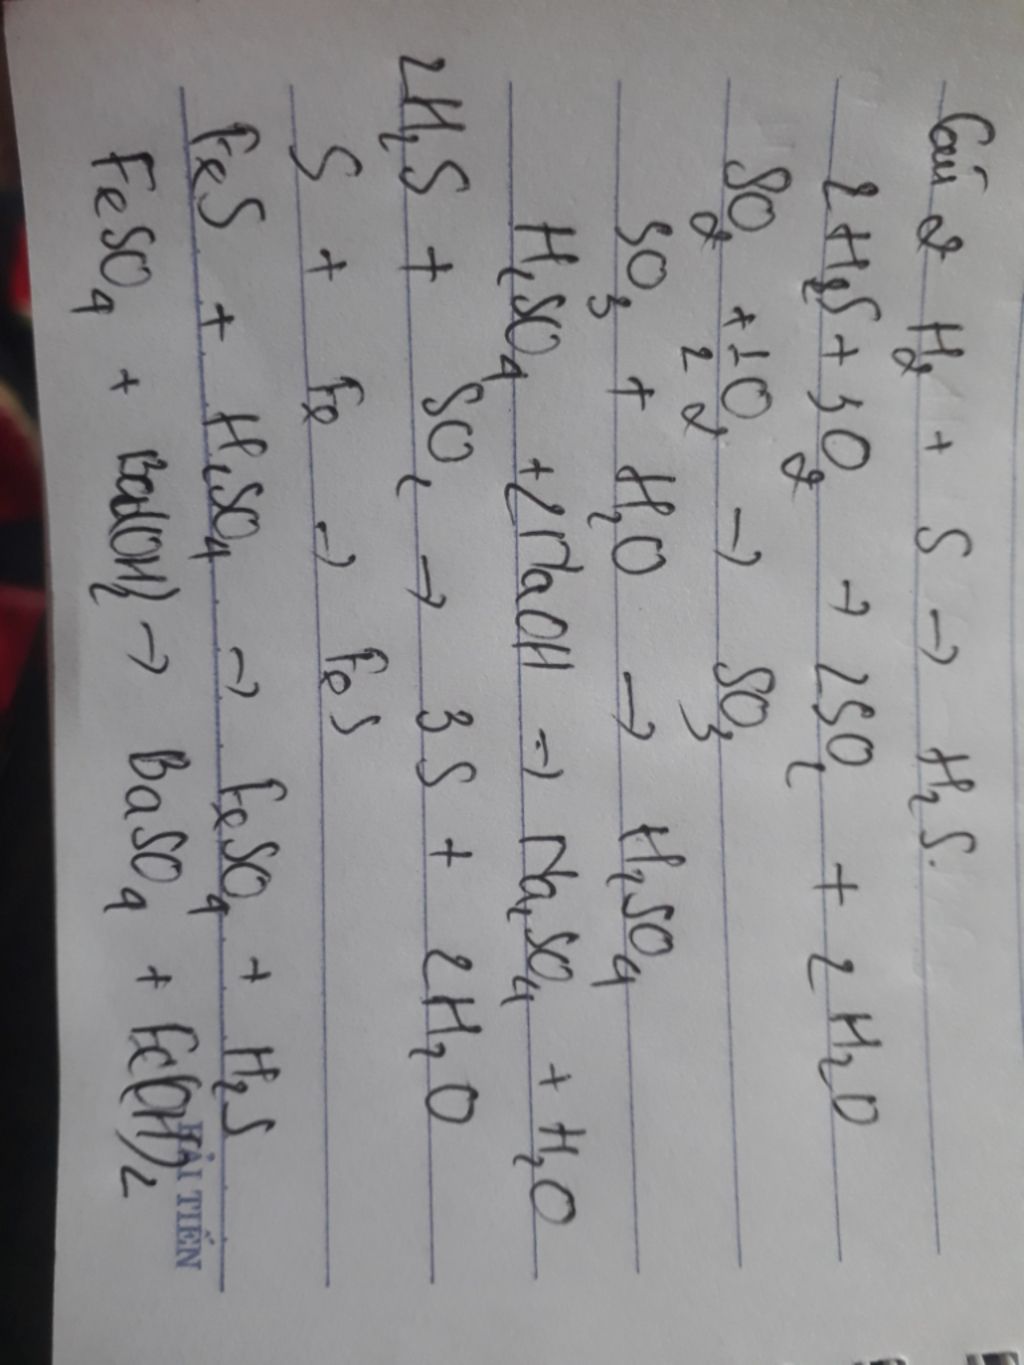 Câu 2 H₂ + S → H₂S.
2H₂S + 3O₂ → 2SO₂ + 2H₂O
SO₂ + 1/2 O₂ → SO₃
SO₃ + H₂O → H₂SO₄
H₂SO₄ + 2NaOH → Na₂SO₄ + H₂O
2H₂S + SO₂ → 3S + 2H₂O
S + Fe → FeS
FeS + H₂SO₄ → FeSO₄ + H₂S
FeSO₄ + Ba(OH)₂ → BaSO₄ + Fe(OH)₂
HẢI TIẾN